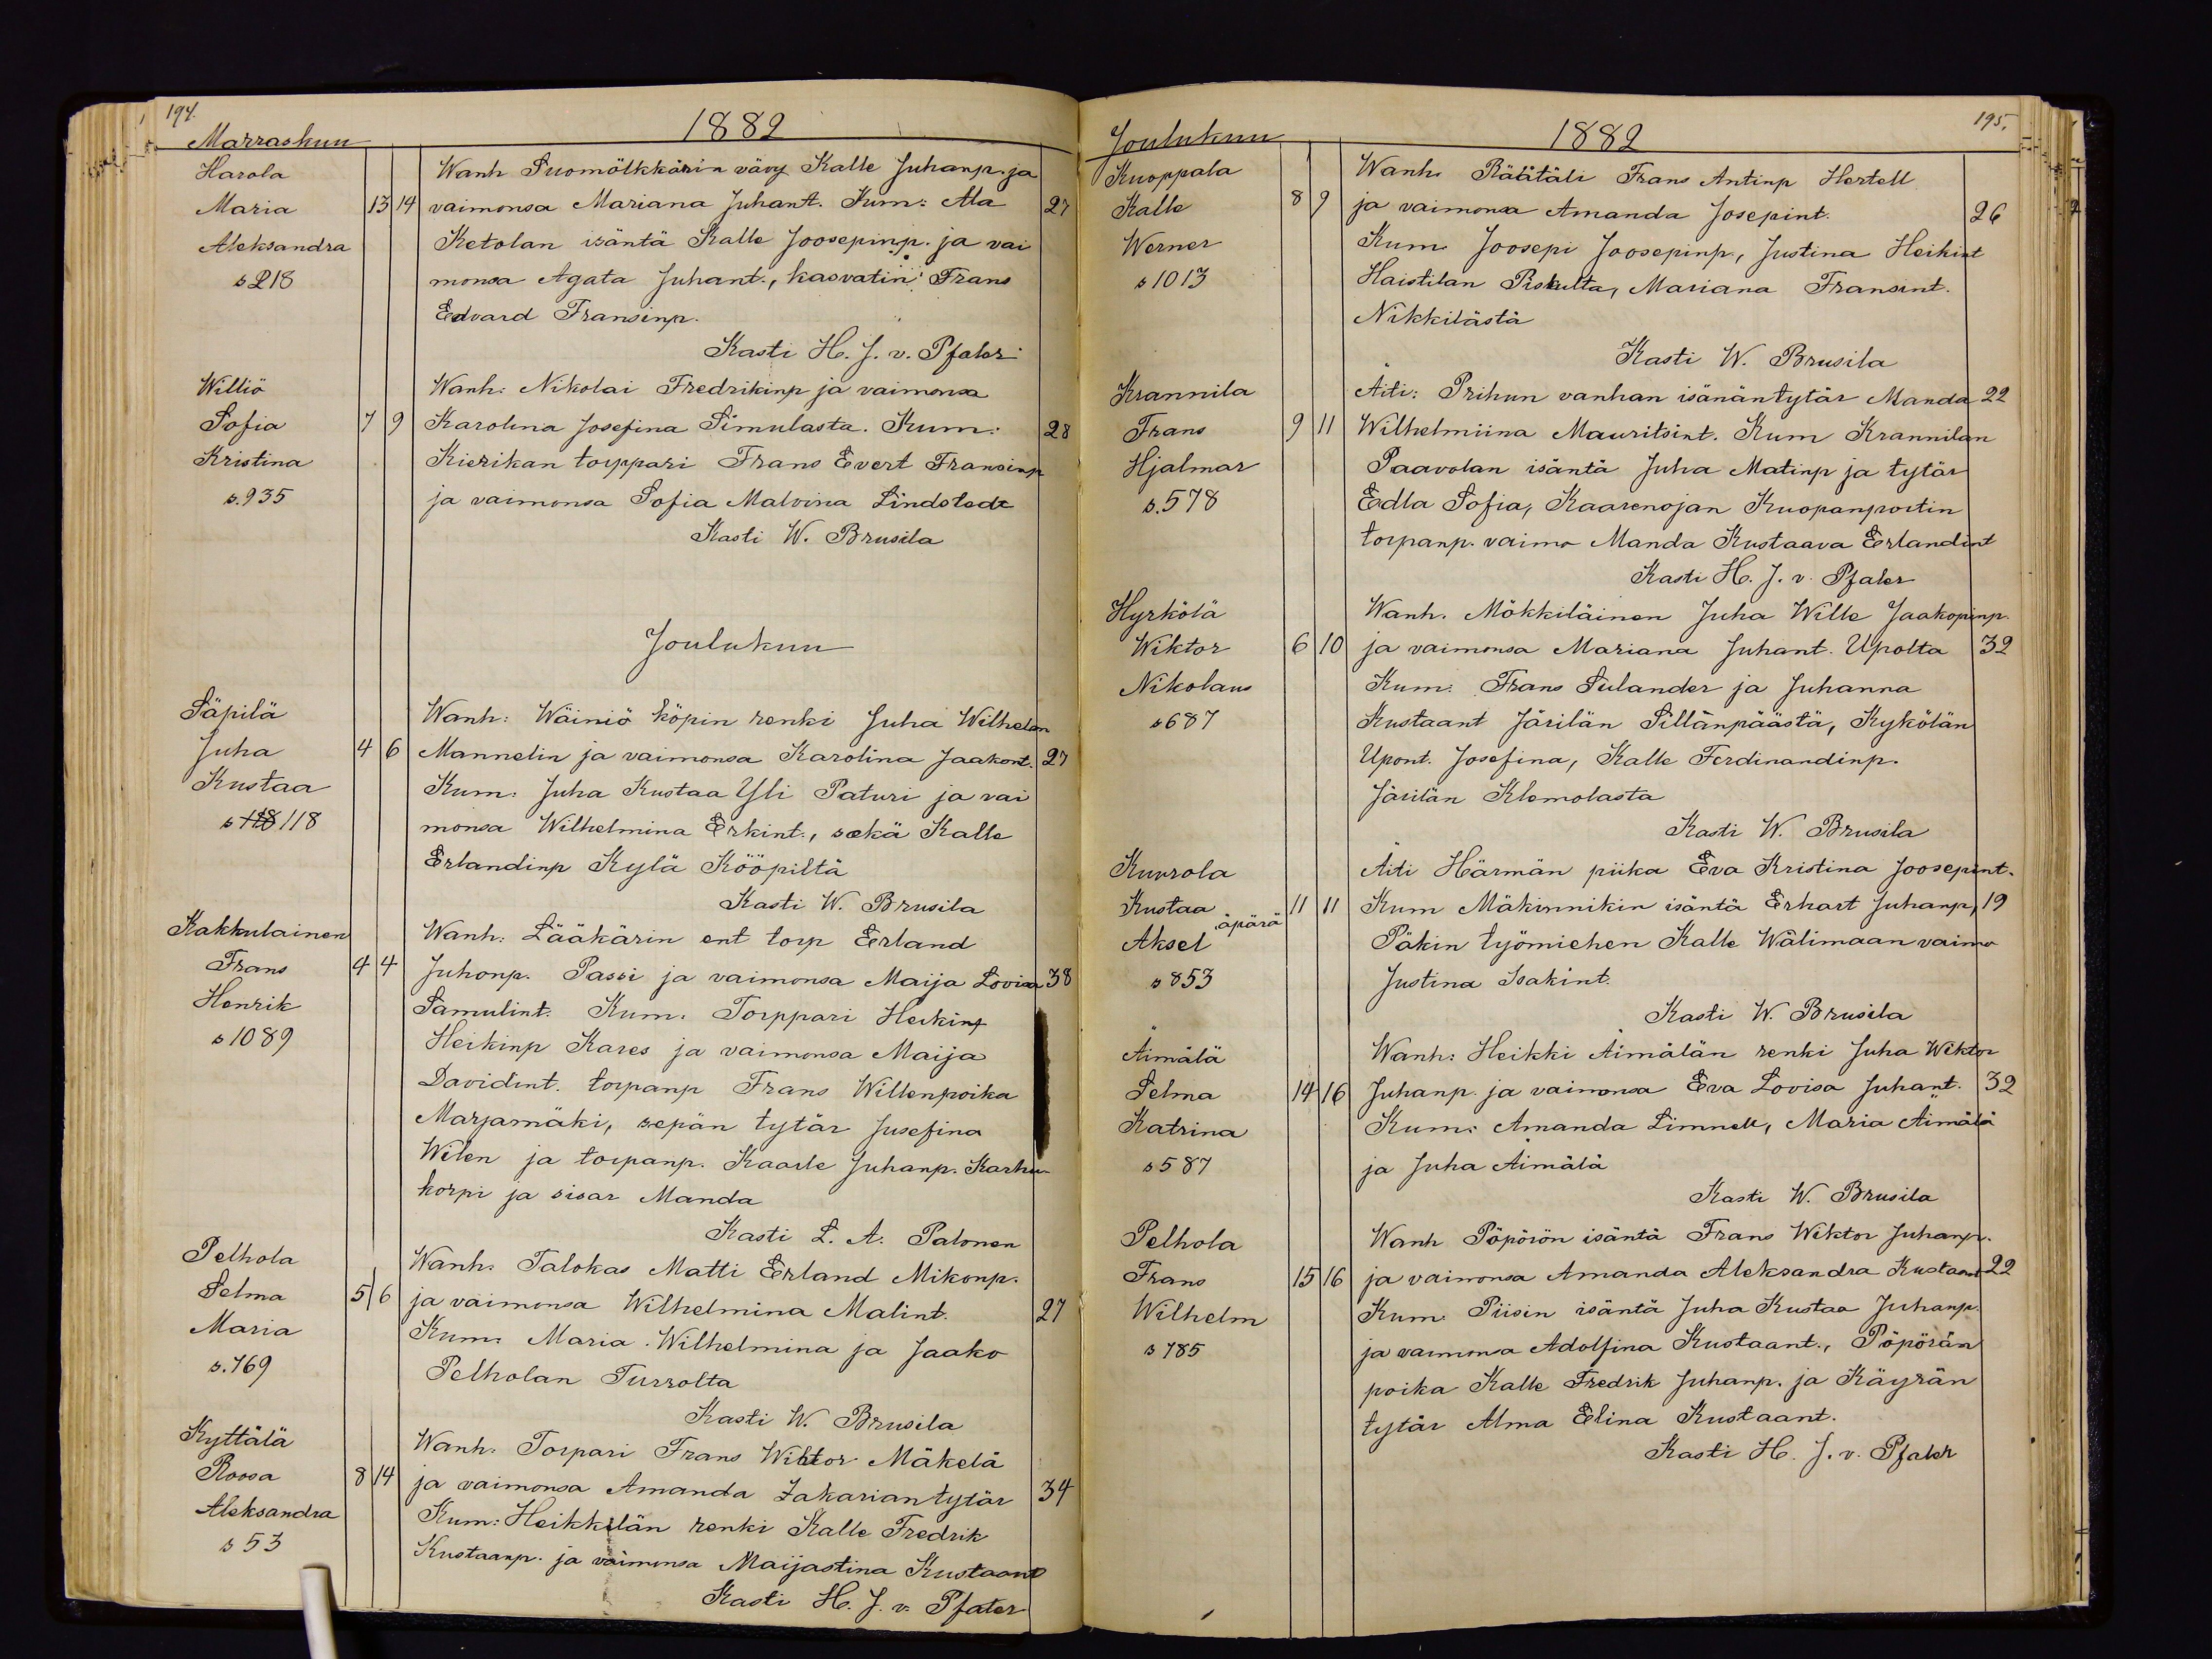 194.
Marraskuu
1882
Harola
Wanh Suomölkkärin vävy Kalle Juhanp. ja
Maria 13 14 vaimonsa Mariana Juhant. Kum: Ala 27
Aleksandra Ketolan isäntä Kalle Joosepinp. ja vai
s 218 monsa Agata Juhant., kasvatin Frans
Edvard Fransinp.
Kasti H. J. v. Pfaler
Williö Wanh: Nikolai Fredrikinp ja vaimonsa
Sofia 7 9 Karolina Josefina Simulasta. Kum: 28
Kristina Kierikan torppari Frans Evert Fransinp
s. 935 ja vaimonsa Sofia Malvina Lindstedt
Kasti W. Brusila
Joulukuu
Säpilä Wanh: Wäiniö köpin renki Juha Wilhelm
Juha 4 6 Mannelin ja vaimonsa Karolina Jaakont. 27
Kustaa Kum: Juha Kustaa Yli Paturi ja vai
s 118 monsa Wilhelmina Erkint., sekä Kalle
Erlandinp Kylä Kööpiltä
Kasti W. Brusila
Kakkulainen Wanh: Lääkärin ent torp Erland
Frans 4 4 Juhonp. Passi ja vaimonsa Maija Lovisa 38
Henrik Samulint. Kum: Torppari Heikinp
s 1089 Heikinp Kares ja vaimonsa Maija
Davidint. torpanp Frans Willenpoika
Marjamäki, sepän tytär Jusefina
Wilen ja torpanp. Kaarle Juhanp. Karhu
korpi ja sisar Manda
Kasti L. A. Palonen
Pelhola Wanh: Talokas Matti Erland Mikonp.
Selma 5 6 ja vaimonsa Wilhelmina Malint. 27
Maria Kum: Maria Wilhelmina ja Jaako
s. 769 Pelholan Turrolta
Kasti W. Brusila
Kyttälä Wanh: Torpari Frans Wiktor Mäkelä
Roosa 8 14 ja vaimonsa Amanda Zakariantytär 34
Aleksandra Kum: Heikkilän renki Kalle Fredrik
s 53 Kustaanp. ja vaimonsa Maijastina Kustaant
Kasti H. J. v. Pfaler
195.
Joulukuu
1882
Kuoppala Wanh: Räätäli Frans Antinp Hertell
Kalle 8 9 ja vaimonsa Amanda Josepint. 26
Werner Kum: Joosepi Joosepinp., Justina Heikint
s 1013 Haistilan Piskulta, Mariana Fransint.
Nikkilästä
Kasti W. Brusila
Krannila Äiti: Prihun vanhan isänäntytär Manda 22
Frans 9 11 Wilhelmiina Mauritsint. Kum Krannilan
Hjalmar Paavolan isäntä Juha Matinp ja tytär
s. 578 Edla Sofia, Kaarenojan Kuopanportin
torpanp. vaimo Manda Kustaava Erlandint
Kasti H. J. v. Pfaler
Hyrkölä Wanh. Mökkiläinen Juha Wille Jaakopinp.
Wiktor 6 10 ja vaimonsa Mariana Juhant. Upolta 32
Nikolaus Kum: Frans Sulander ja Juhanna
s 687 Kustaant Järilän Sillänpäästä, Kykölän
Upont. Josefina, Kalle Ferdinandinp.
Järilän Klemolasta
Kasti W. Brusila
Kuurola Äiti Härmän piika Eva Kristina Joosepint.
Kustaa 11 11 Kum Mäkinnikin isäntä Erhart Juhanp, 19
äpärä
Aksel Päkin työmiehen Kalle Wälimaan vaimo
s 853 Justina Isakint.
Kasti W. Brusila
Äimälä Wanh: Heikki Äimälän renki Juha Wiktor
Selma 14 16 Juhanp. ja vaimonsa Eva Lovisa Juhant. 32
Katrina Kum: Amanda Limnell, Maria Äimälä
s 587 ja Juha Äimälä
Kasti W. Brusila
Pelhola Wanh Pöpörön isäntä Frans Wiktor Juhanp.
Frans 15 16 ja vaimonsa Amanda Aleksandra Kustaant 22
Wilhelm Kum: Piisin isäntä Juha Kustaa Juhanp.
s 785 ja vaimonsa Adolfina Kustaant., Pöpörän
poika Kalle Fredrik Juhanp. ja Käyrän
tytär Alma Elina Kustaant.
Kasti H. J. v. Pfaler